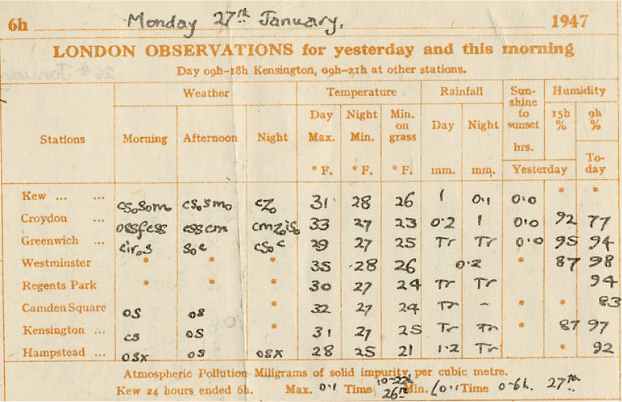 6h Monday 27th January. 1947
LONDON OBSERVATIONS for yesterday and this morning
Day 09h-18h Kensington, 09h-21h at other stations.
Stations Weather Temperature Rainfall Sun-shine to sunset hrs. Humidity
Morning Afternoon Night Day Max. Night Min. Min. on grass Day Night 15h % 9h %
° F. ° F. ° F. mm. mm. Yesterday To-day
Kew ... ... csosom csosmo 31 28 26 1 0.1 0.0 " "
Croydon ... essem 33 27 23 0.2 1 0.0 92 77
Greenwich ... 29 27 25 Tr Tr 0.0 95 94
Westminster " " " 35 28 26 0.2 " 87 98
Regents Park " " " 30 27 24 Tr Tr 94
Camden Square os os 32 27 24 Tr - " " 83
Kensington ... cs os 31 27 25 Tr Tr " 87 97
Hampstead ... osx os osx 28 25 21 1.2 Tr " 92
Atmospheric Pollution Miligrams of solid impurity per cubic metre.
Kew 24 hours ended 6h. Max. 0.1 Time 10-22h 26th Min. Time 0-6h. 27th